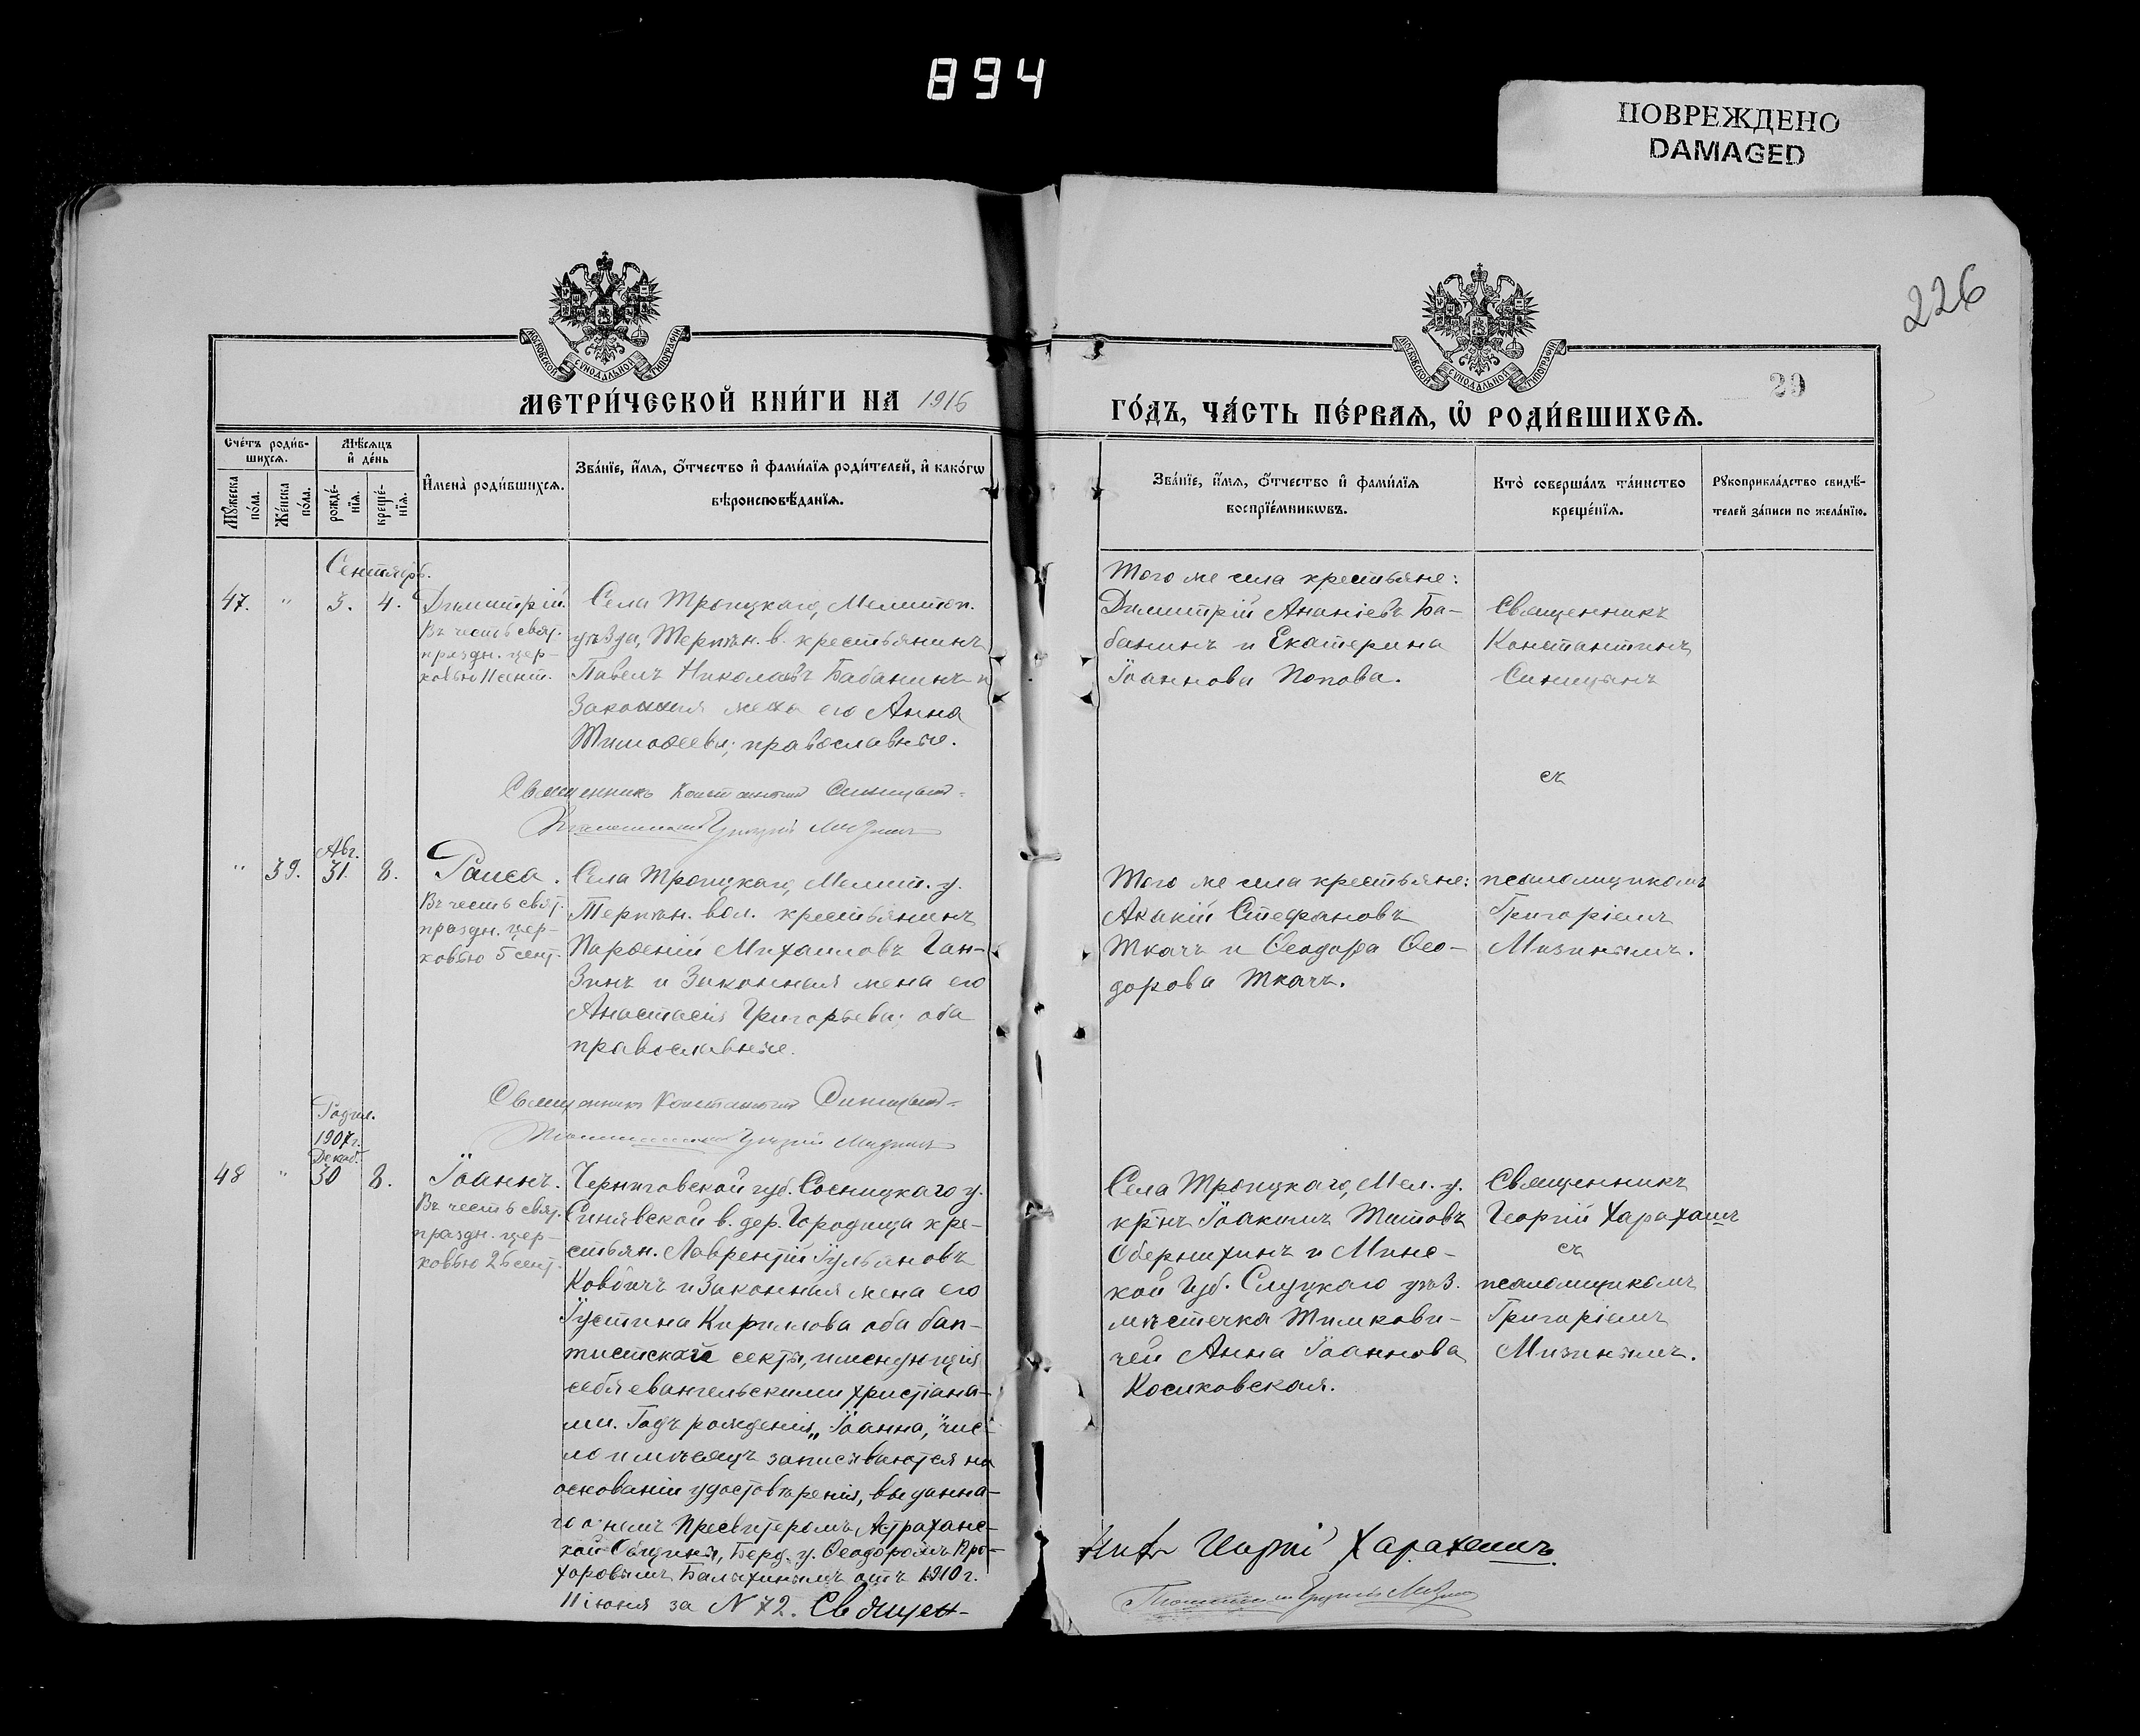 894
ПОВРЕЖДЕНО
DAMAGED
226
29
МОСКОВСКОЙ СУНОДАЛЬНОЙ ТИПОГРАФІИ
МОСКОВСКОЙ СУНОДАЛЬНОЙ ТИПОГРАФІИ
МЕТРИ́ЧЕСКОЙ КНИ́ГИ НА 1916
ГО́ДЪ, ЧА́СТЬ ПЕ́РВАѦ, Ѡ҆ РОДИ́ВШИХСѦ.
Сче́тъ роди́в-
шихсѧ.
Мꙋ́жеска
по́ла.
Же́нска
по́ла.
Мѣ́сѧцъ
и҆ де́нь
рожде́-
нїѧ.
креще́-
нїѧ.
И҆мена̀ роди́вшихсѧ.
Зва́нїе, и҆́мѧ, ѻ҆́тчество и҆ фами́лїѧ роди́телей, и҆ како́гѡ
вѣроисповѣ́данїѧ.
Зва́нїе, и҆́мѧ, ѻ҆́тчество и҆ фами́лїѧ
воспрїе́мникѡвъ.
Кто̀ соверша́лъ та́инство
креще́нїѧ.
Рꙋкоприкла́дство свидѣ́-
телей за́писи по жела́нїю.
Сентябрь.
47. " 3. 4. Димитрій.
Въ честь свят.
праздн. цер-
ковью 11 сент.
Села Троицкаго, Мелитоп.
уѣзда, Терпѣн. в. крестьянинъ
Павелъ Николаевъ Бабанинъ и
Законная жена его Анна
Тимоѳеева; православные.
Того же села крестьяне:
Димитрій Ананіевъ Ба-
банинъ и Екатерина
Іоаннова Попова.
Священникъ
Константинъ
Синицынъ
съ
Священникъ Константинъ Синицынъ
Псаломщикъ Григорій Мизинъ
Авг.
" 39. 31. 8. Раиса.
Въ честь свят.
праздн. цер-
ковью 5 сент.
Села Троицкаго, Мелит. у.
Терпѣн. вол. крестьянинъ
Парѳеній Михаиловъ Ган-
зинъ и Законная жена его
Анастасія Григорьева; оба
православные.
Того же села крестьяне:
Акакій Стефановъ
Ткачъ и Ѳеодора Ѳео-
дорова Ткачъ.
псаломщикомъ
Григоріемъ
Мизинымъ.
Священникъ Константинъ Синицынъ
Псаломщикъ Григорій Мизинъ
Родил.
1907 г.
Декаб.
48 " 30 8. Іоаннъ.
Въ честь свят.
праздн. цер-
ковью 26 сент.
Черниговской губ. Сосницкаго у.
Синявской в. дер. Городища кре-
стьян. Лаврентій Іульановъ
Ковбичъ и Законная жена его
Іустина Кириллова оба бап-
тистской секты, именующія
себя евангельскими христіана-
ми. Годъ рожденія „Іоанна," чис-
ло и мѣсяцъ записываются на
основаніи удостовѣренія, выданна-
го о немъ Пресвитеромъ Астраханс-
кой Общины, Берд. у. Ѳеодоромъ Про-
хоровымъ Балихинымъ отъ 1910 г.
11 іюня за N 72. Священ-
Села Троицкаго, Мел. у.
кр-нъ Іоакимъ Титовъ
Обернихинъ и Минс-
кой Губ. Слуцкаго уѣз.
мѣстечка Тимкови-
чей Анна Іоаннова
Косиковская.
Священникъ
Георгій Харахашъ
съ
псаломщикомъ
Григоріемъ
Мизинымъ.
никъ Георгій Харахашъ
Псаломщикъ Григорій Мизинъ